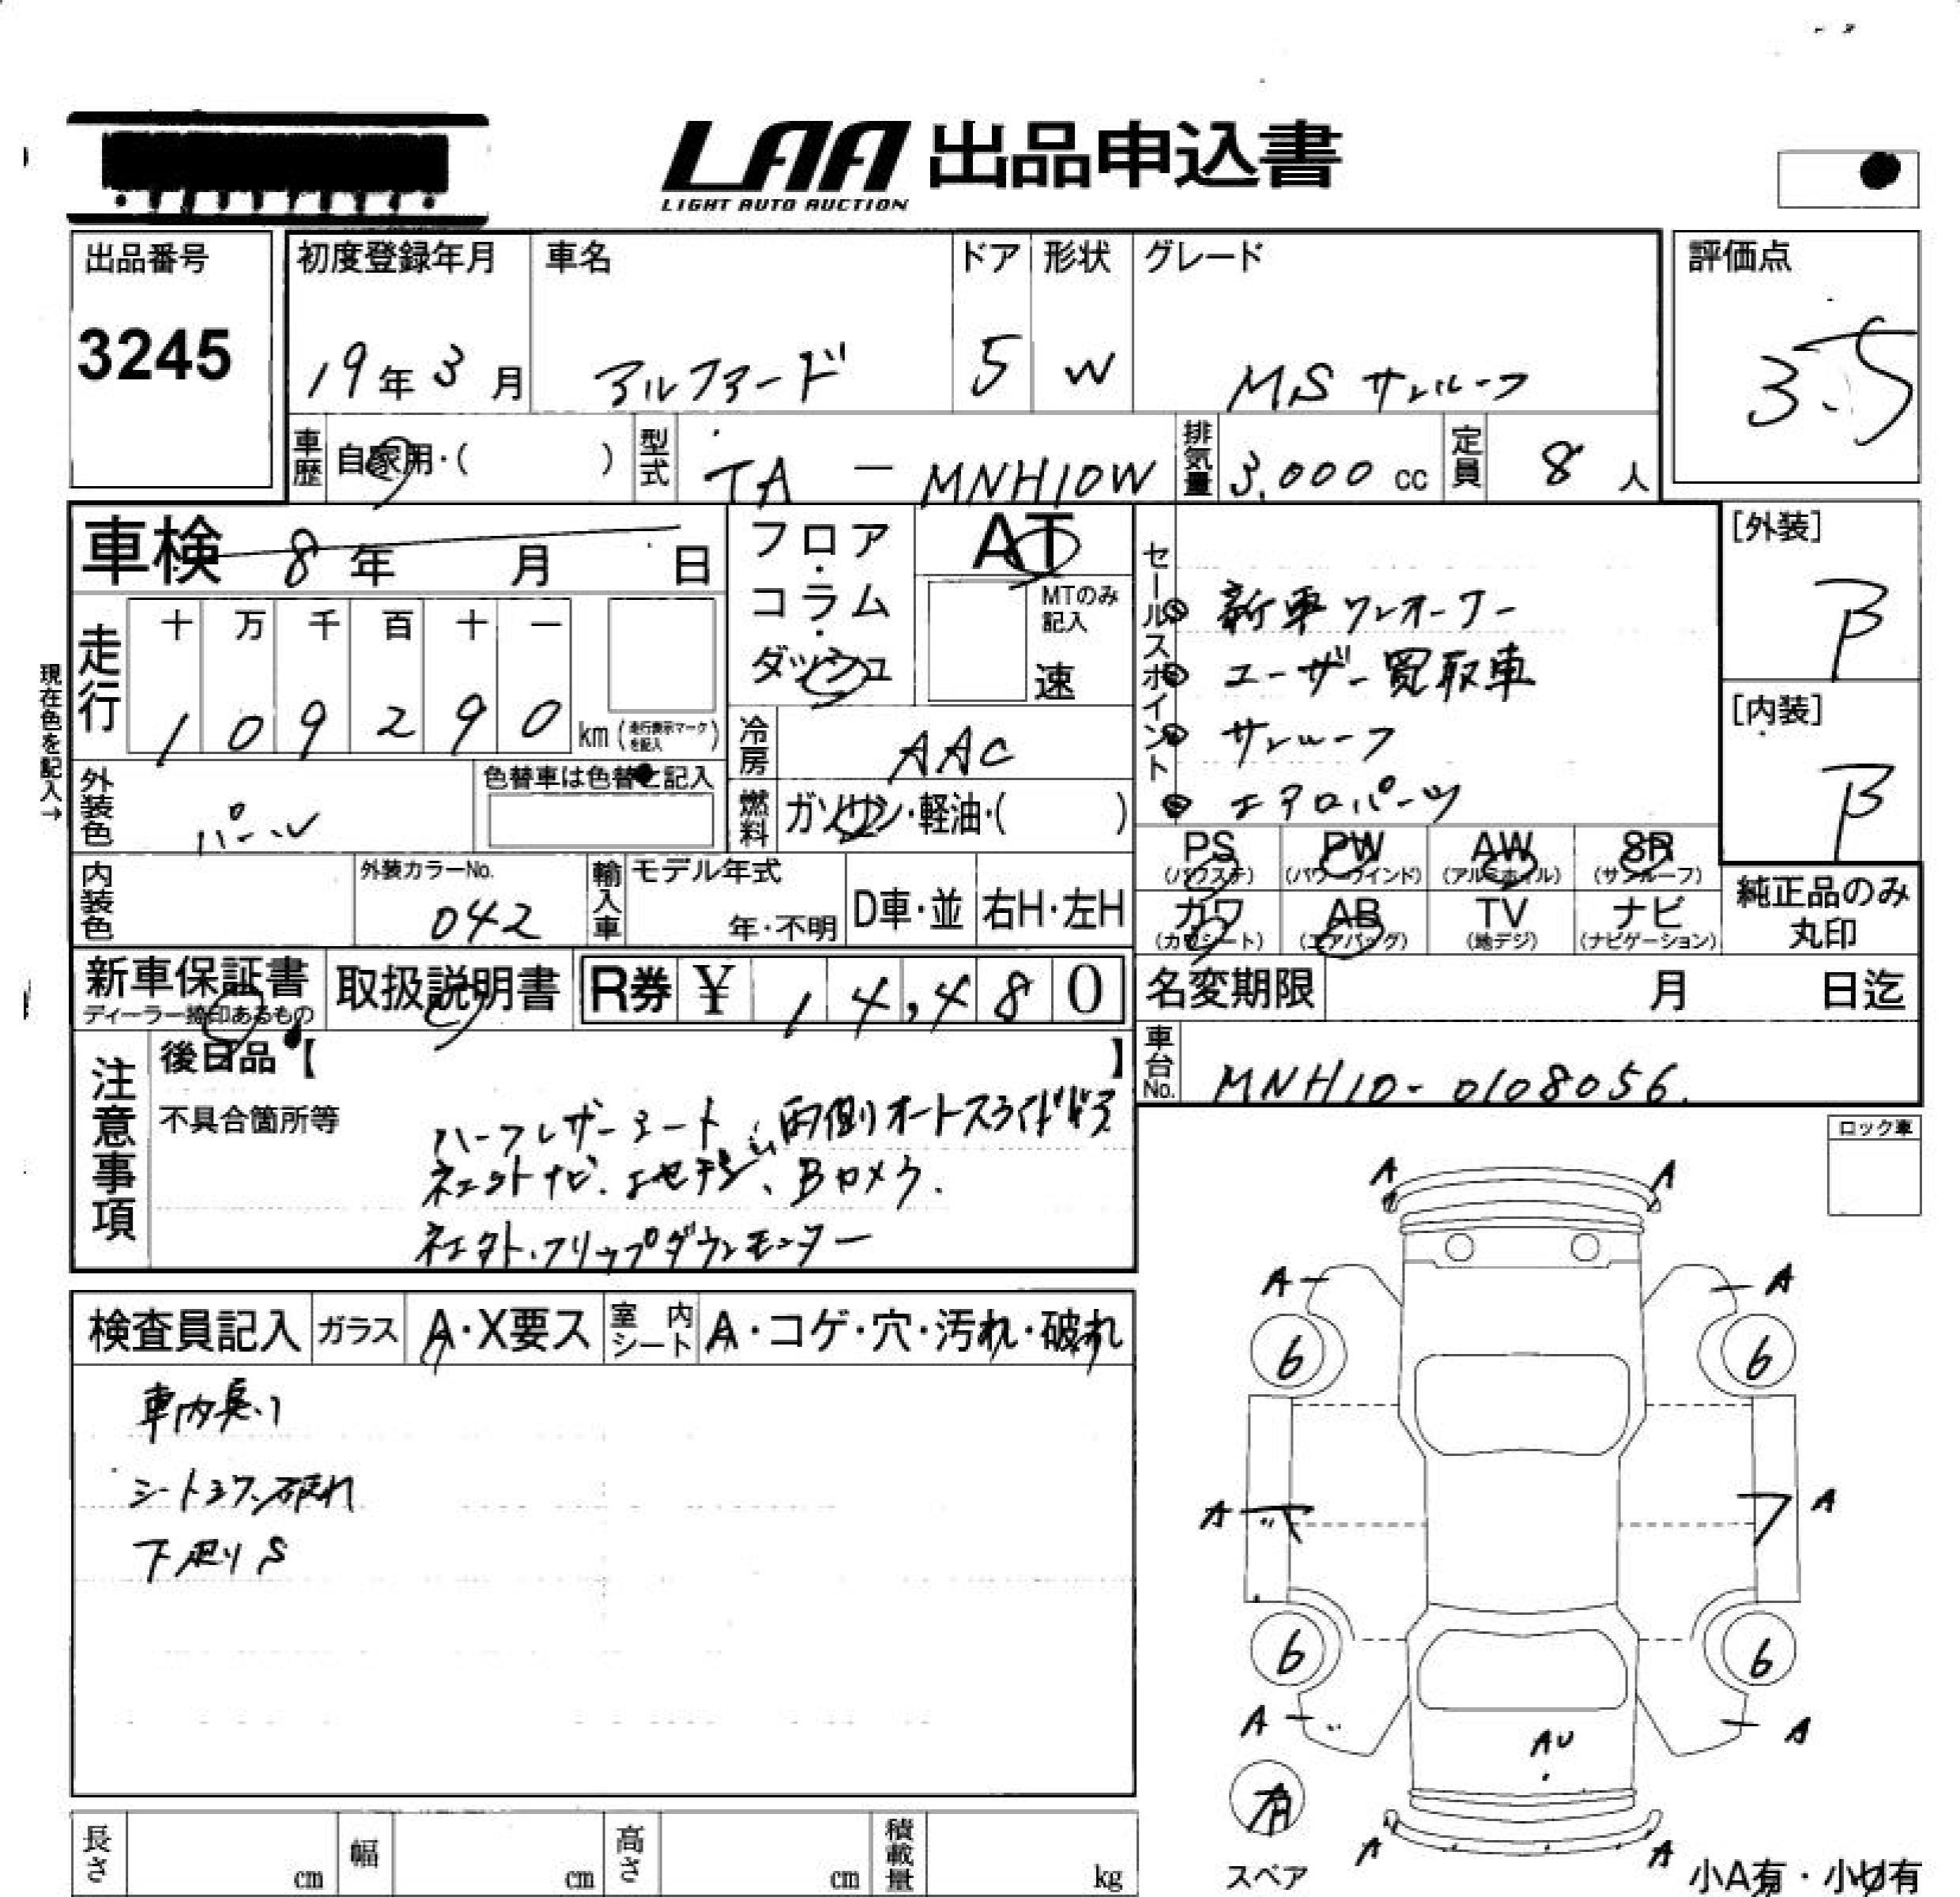 LAA 出品申込書
LIGHT AUTO AUCTION
出品番号
3245
初度登録年月
19年3月
車名
アルファード
ドア
5
形状
W
グレード
MS サンルーフ
評価点
3.5
車歴
自家用・( )
型式
TA - MNH10W
排気量
3.000 cc
定員
8 人
車検 8年 月 日
フロア・コラム・ダッシュ
AT
MTのみ記入
速
セールスポイント
新車ワンオーナー
ユーザー買取車
サンルーフ
エアロパーツ
[外装]
B
[内装]
B
現在色を記入→
走行
十 万 千 百 十 一
1 0 9 2 9 0
km (走行表示マークを記入)
冷房
AAC
外装色
パール
色替車は色替と記入
燃料
ガソリン・軽油・( )
内装色
外装カラーNo.
042
輸入車
モデル年式
年・不明
D車・並
右H・左H
PS (パワステ)
PW (パワーウインド)
AW (アルミホイル)
SR (サンルーフ)
カワ (カワシート)
AB (エアバッグ)
TV (地デジ)
ナビ (ナビゲーション)
純正品のみ丸印
新車保証書
ディーラー捺印あるもの
取扱説明書
R券 ¥ 14,480
名変期限 月 日迄
車台No.
MNH10-0108056.
注意事項
後日品【 】
不具合箇所等
ハーフレザーシート 両側オートスライドドア
ナビ. Bカメラ.
フリップダウンモニター
ロック車
検査員記入
ガラス
A・X要ス
室内シート
A・コゲ・穴・汚れ・破れ
車内臭い
シートスワ、破れ
下廻りS
A A
A A
6 6
A A
6 6
A A
AU
有
スペア
A A
小A有・小U有
長さ cm
幅 cm
高さ cm
積載量 kg